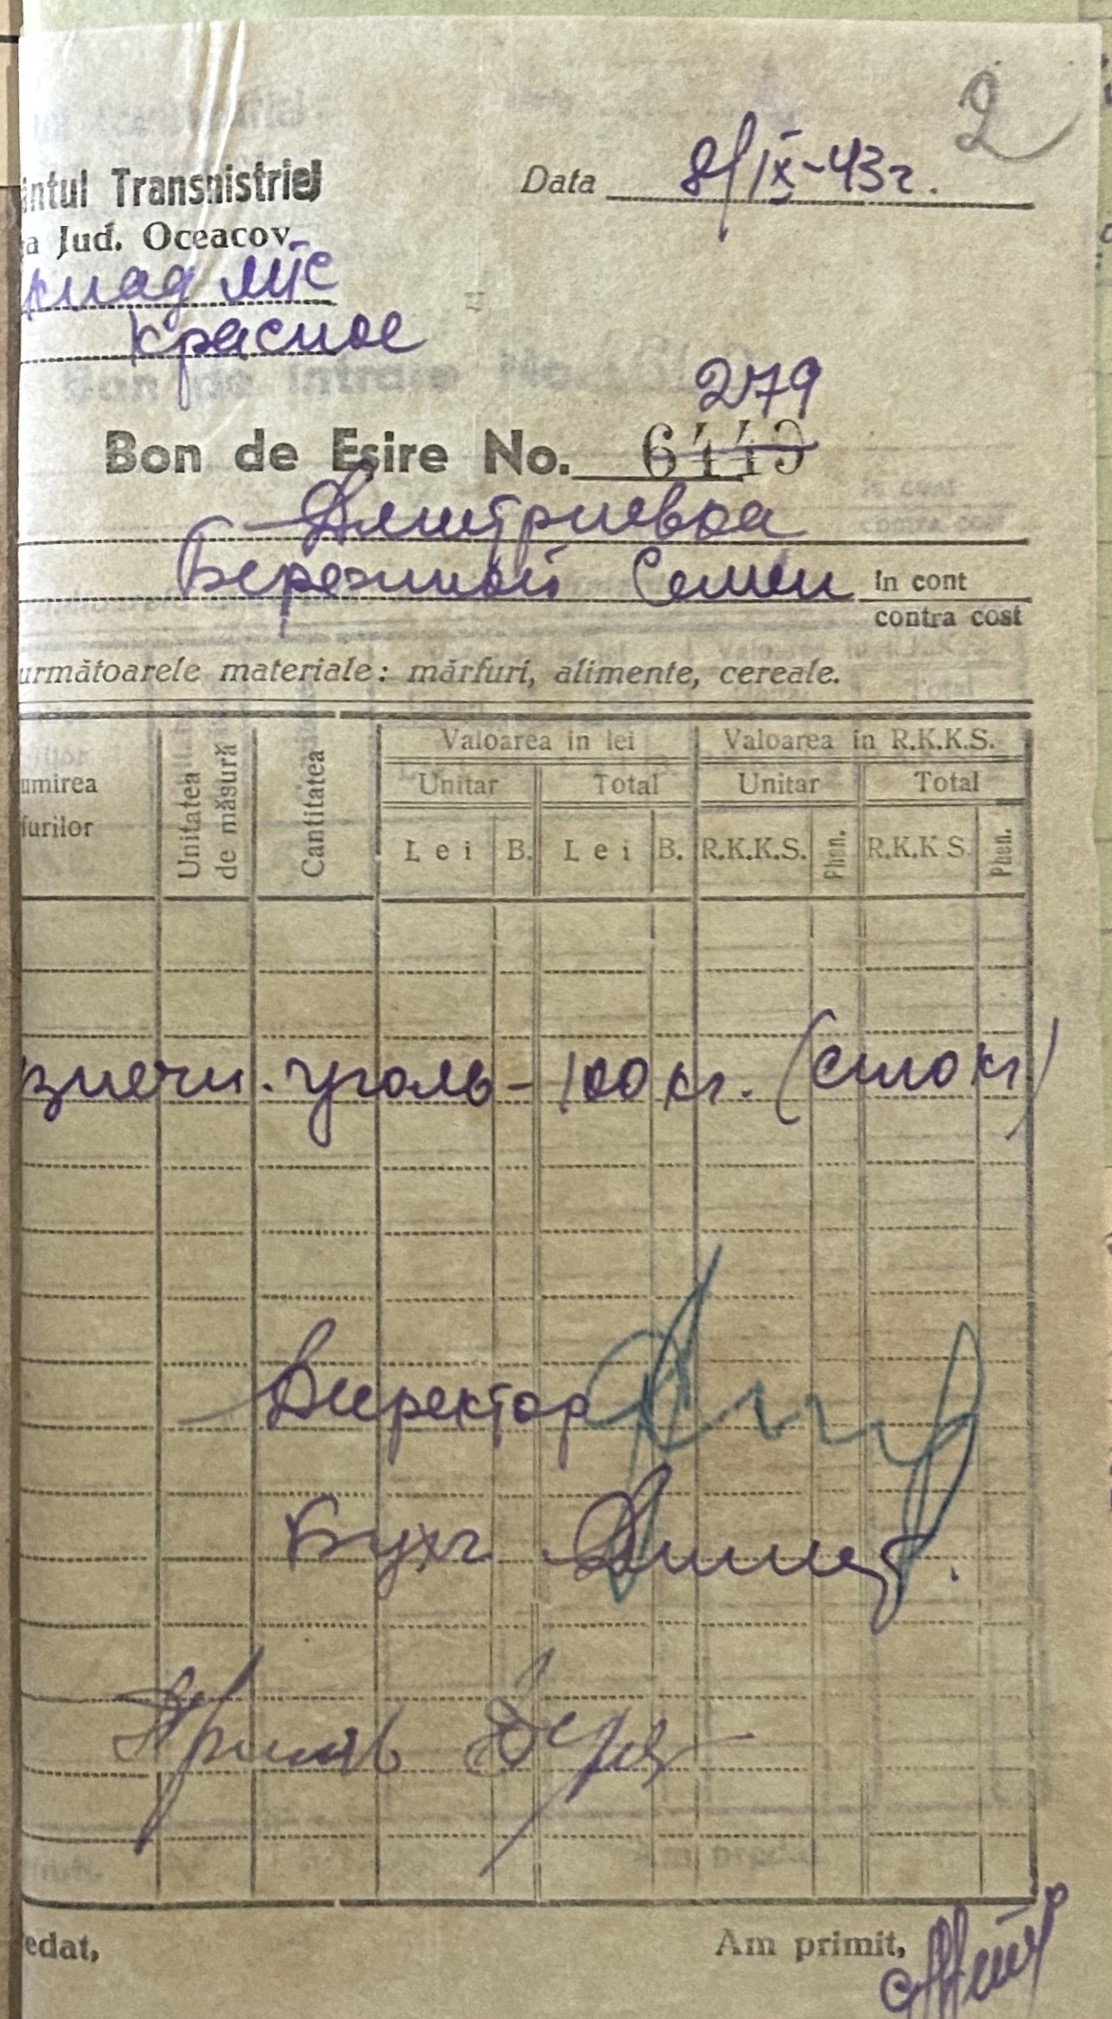 2
intul Transnistriei
Data 8/IX-43г.
a Jud. Oceacov
клад мтс
Красное
279
Bon de Eşire No. 6449
Дмитриевка
Бережный Семен in cont
contra cost
următoarele materiale: mărfuri, alimente, cereale.
Valoarea in lei Valoarea in R.K.K.S.
umirea Unitatea de măsură Cantitatea Unitar Total Unitar Total
furilor Lei B. Lei B. R.K.K.S. Phen. R.K.K.S. Phen.
знечн. уголь - 100 кг. (сто кг)
Директор
Бухг
edat, Am primit,